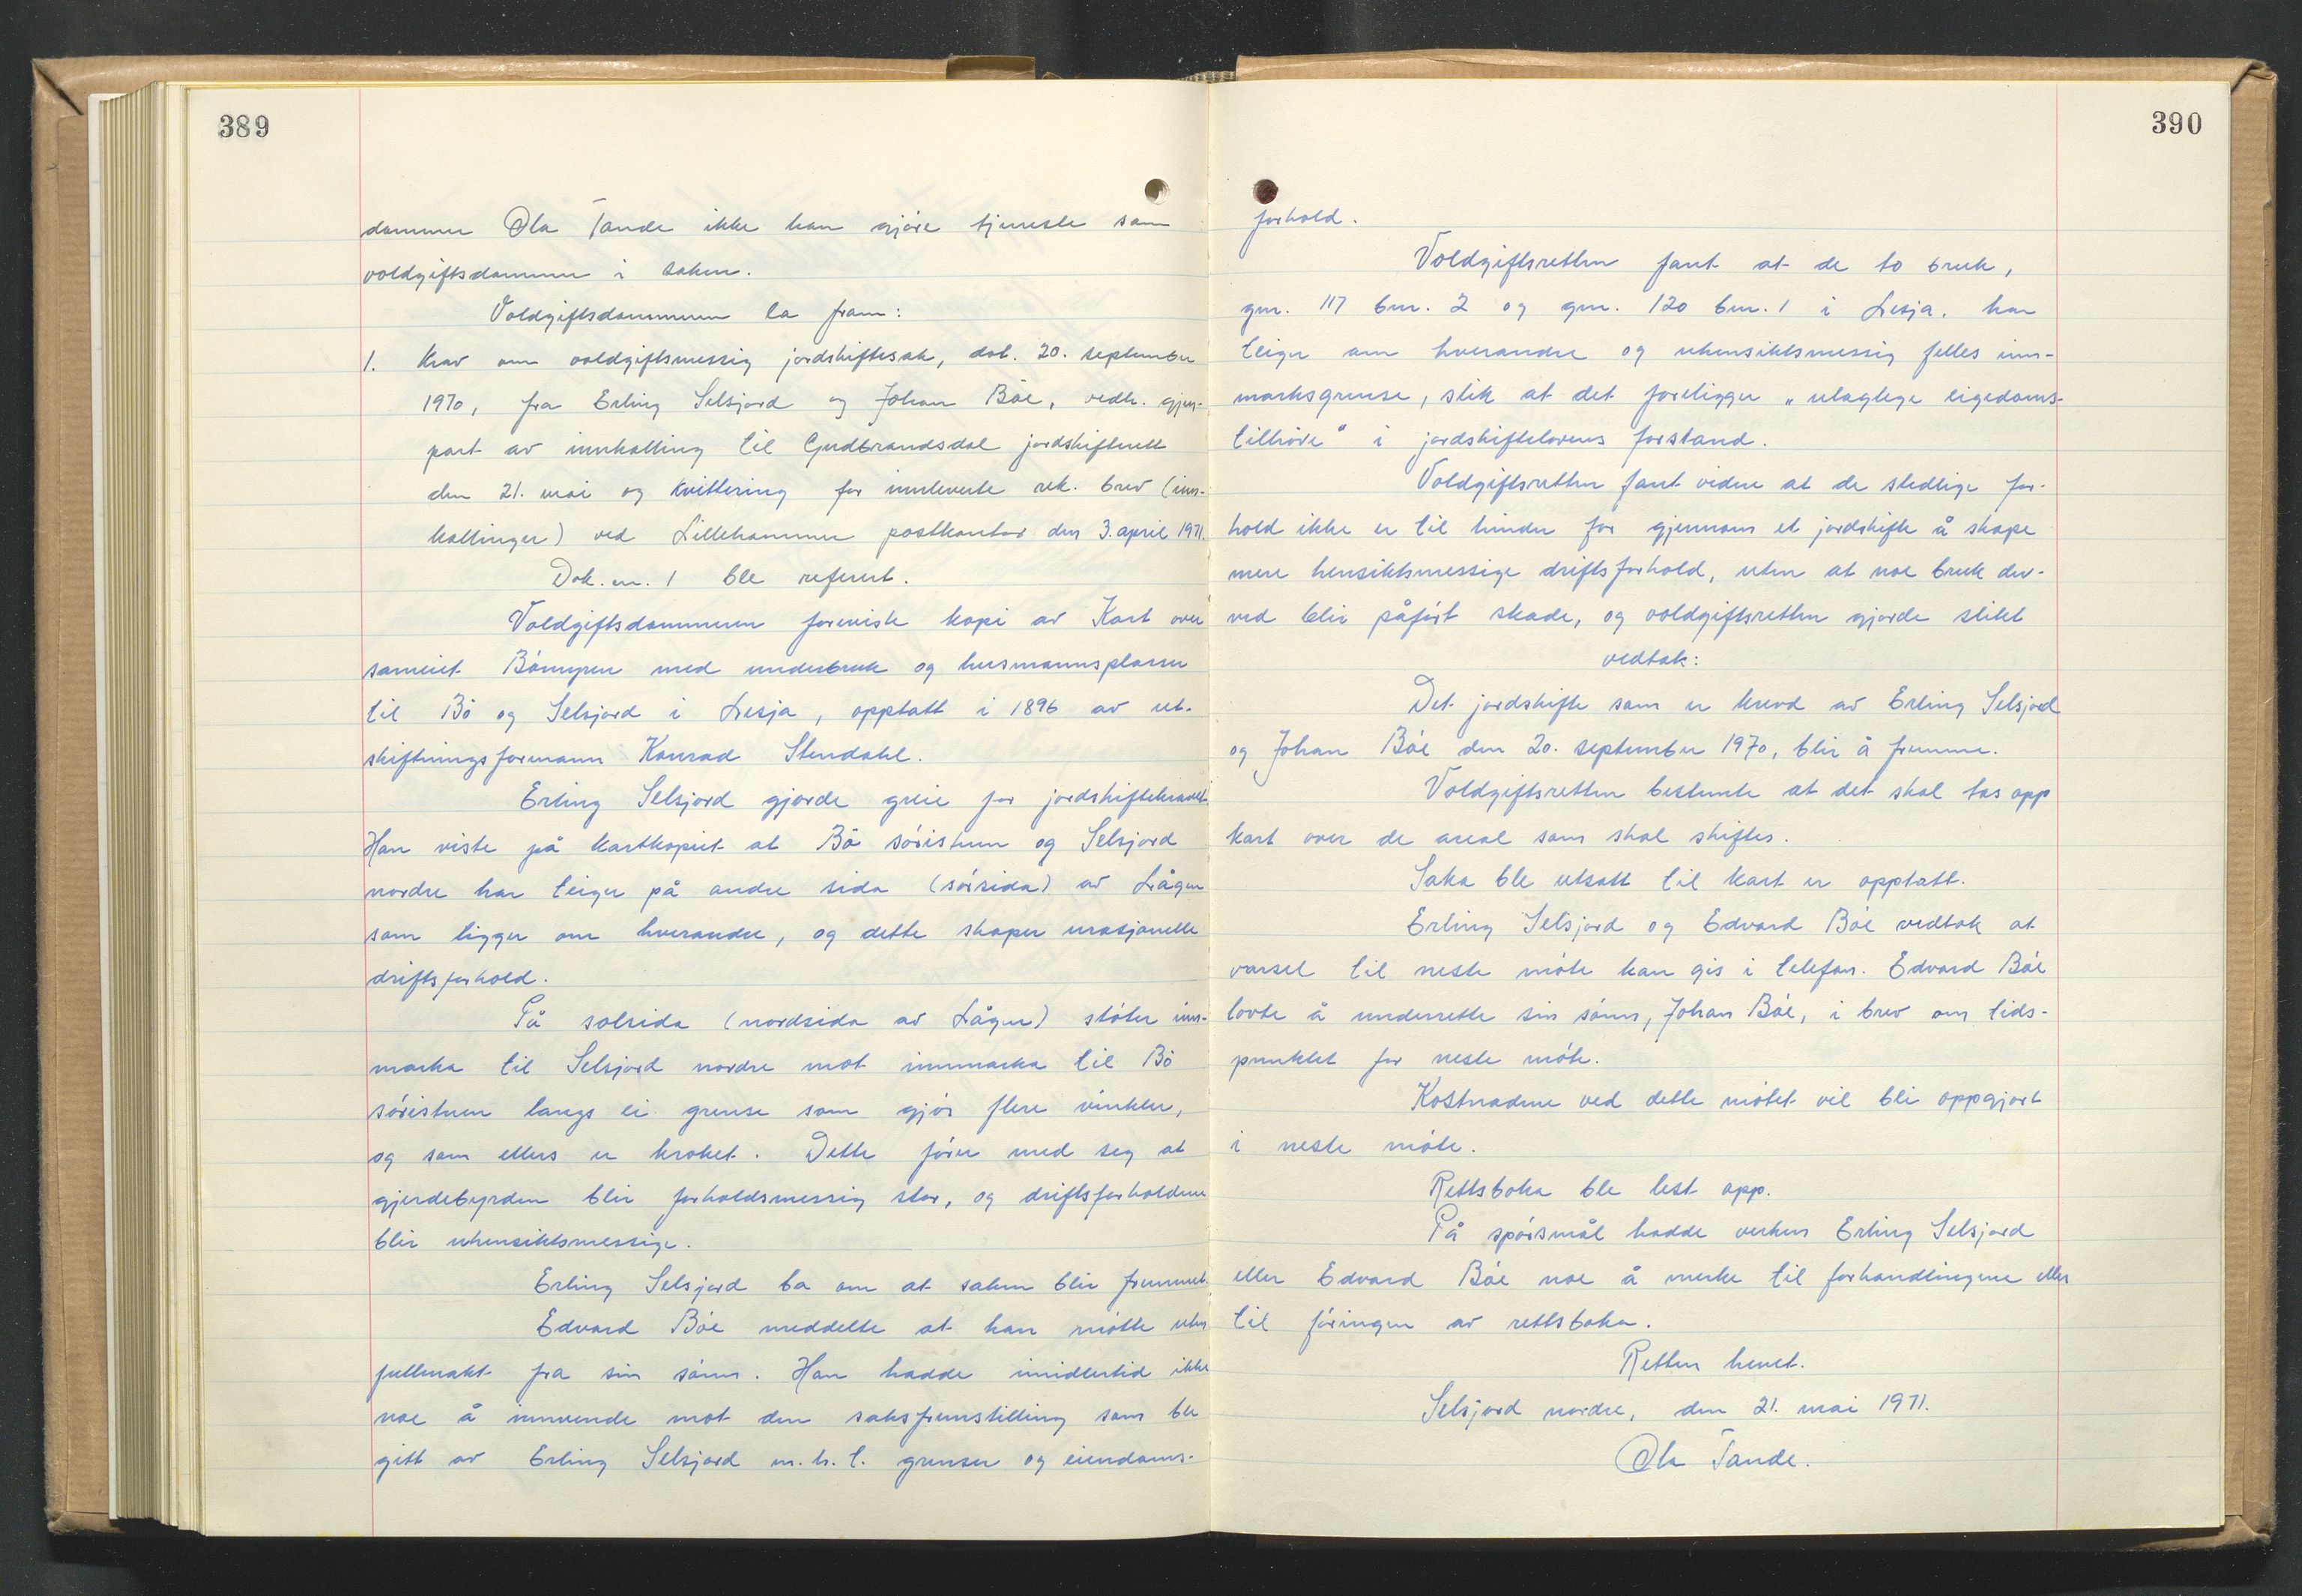 389
dommer Ola Tande ikke kan gjøre tjeneste som
voldgiftsdommer i saken.
Voldgiftsdommeren la fram:
1. Krav om voldgiftsmessig jordskiftesak, dat. 20. september
1970, fra Erling Selsjord og Johan Bøe, vedh. gjen-
part av innkalling til Gudbrandsdal jordskifterett
den 21. mai og kvittering for innleverte rek. brev (inn-
kallinger) ved Lillehammer postkontor den 3. april 1971.
Dok. nr. 1 ble referert.
Voldgiftsdommeren foreviste kopi av Kart over
sameiet Bømyren med underbruk og husmannsplasser
til Bø og Selsjord i Lesja, opptatt i 1896 av ut-
skiftningsformann Konrad Stendahl.
Erling Selsjord gjorde greie for jordskiftekravet.
Han viste på kartkopiet at Bø søristuen og Selsjord
nordre har teiger på andre sida (sørsida) av Lågen
som ligger om hverandre, og dette skaper urasjonelle
driftsforhold.
På solsida (nordsida av Lågen) støter inn-
marka til Selsjord nordre mot innmarka til Bø
søristuen langs ei grense som gjør flere vinkler,
og som ellers er kroket. Dette fører med seg at
gjerdebyrden blir forholdsmessig stor, og driftsforholdene
blir uhensiktsmessige.
Erling Selsjord ba om at saken blir fremmet.
Edvard Bøe meddelte at han møtte uten
fullmakt fra sin sønn. Han hadde imidlertid ikke
noe å innvende mot den saksfremstilling som ble
gitt av Erling Selsjord m.h.t. grenser og eiendoms-
390
forhold.
Voldgiftsretten fant at de to bruk,
gnr. 117 bnr. 2 og gnr. 120 bnr. 1 i Lesja, har
teiger om hverandre og uhensiktsmessig felles inn-
marksgrense, slik at det foreligger „ulaglege eigedoms-
tilhøve“ i jordskiftelovens forstand.
Voldgiftsretten fant videre at de stedlige for-
hold ikke er til hinder for gjennom et jordskifte å skape
mere hensiktsmessige driftsforhold, uten at noe bruk der-
ved blir påført skade, og voldgiftsretten gjorde slikt
vedtak:
Det jordskifte som er krevd av Erling Selsjord
og Johan Bøe den 20. september 1970, blir å fremme.
Voldgiftsretten bestemte at det skal tas opp
kart over de areal som skal skiftes.
Saka ble utsatt til kart er opptatt.
Erling Selsjord og Edvard Bøe vedtok at
varsel til neste møte kan gis i telefon. Edvard Bøe
lovte å underrette sin sønn, Johan Bøe, i brev om tids-
punktet for neste møte.
Kostnadene ved dette møtet vil bli oppgjort
i neste møte.
Rettsboka ble lest opp.
På spørsmål hadde verken Erling Selsjord
eller Edvard Bøe noe å merke til forhandlingene eller
til føringen av rettsboka.
Retten hevet.
Selsjord nordre, den 21. mai 1971.
Ola Tande.